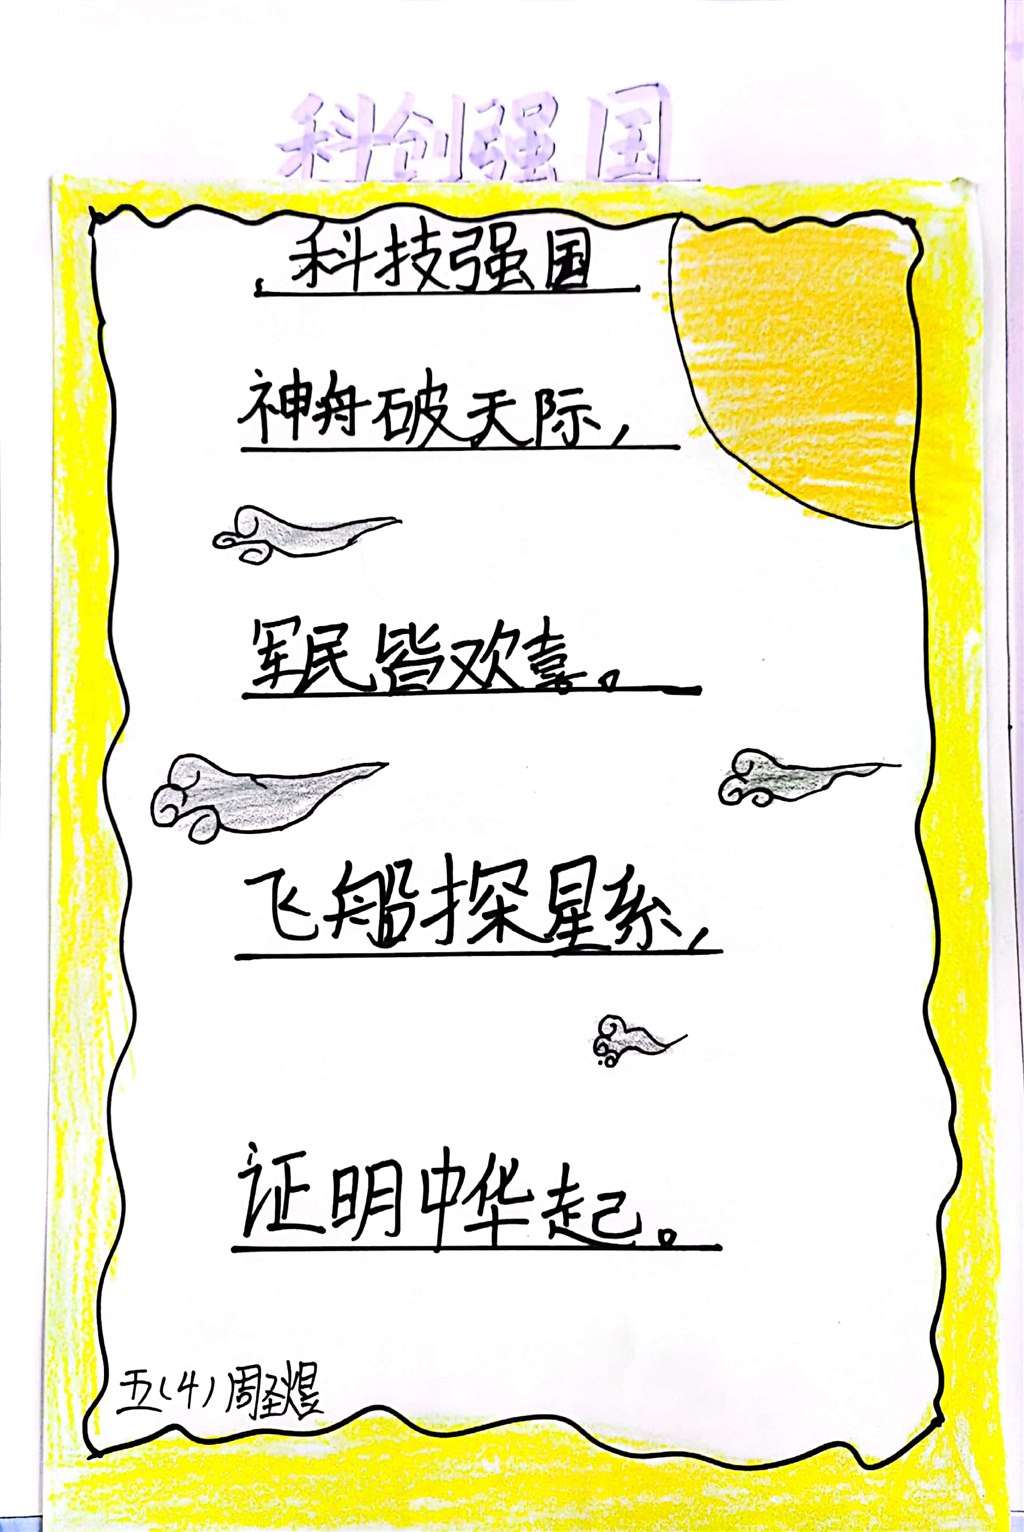 科创强国
科技强国
神舟破天际，
军民皆欢喜。
飞船探星系，
证明中华起。
五（4）周圣煜